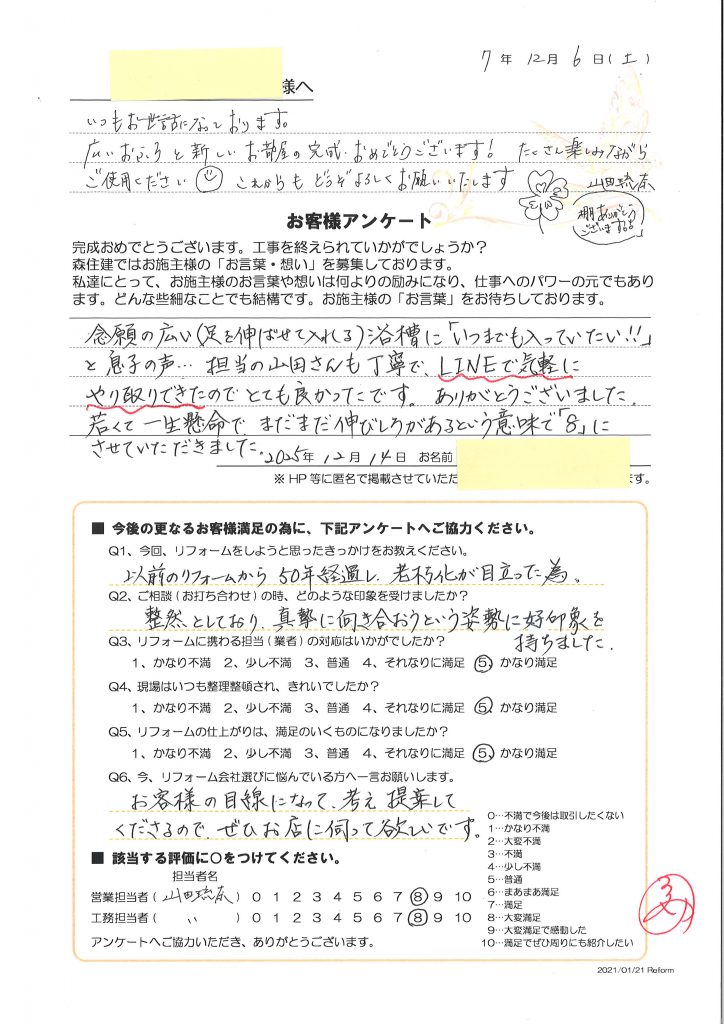 7年 12月 6日(土)
様へ
いつもお世話になっております。
広いおふろと新しいお部屋の完成、おめでとうございます! たくさん楽しみながら
ご使用ください これからもどうぞよろしくお願いいたします
棚ありがとうございます
お客様アンケート
完成おめでとうございます。工事を終えられていかがでしょうか?
森住建ではお施主様の「お言葉・想い」を募集しております。
私達にとって、お施主様のお言葉や想いは何よりの励みになり、仕事へのパワーの元でもあり
ます。どんな些細なことでも結構です。お施主様の「お言葉」をお待ちしております。
念願の広い(足を伸ばせて入れる)浴槽に「いつまでも入っていたい!!」
と息子の声… 担当の山田さんも丁寧で、LINEで気軽に
やり取りできたのでとても良かったです。ありがとうございました。
若くて一生懸命で、まだまだ伸びしろがあるという意味で「8」に
させていただきました。
2025年 12月 14日 お名前
※HP等に匿名で掲載させていただ
ます。
■ 今後の更なるお客様満足の為に、下記アンケートへご協力ください。
Q1、今回、リフォームをしようと思ったきっかけをお教えください。
以前のリフォームから50年経過し、老朽化が目立った為。
Q2、ご相談(お打ち合わせ)の時、どのような印象を受けましたか?
整然としており、真摯に向き合おうという姿勢に好印象を
持ちました。
Q3、リフォームに携わる担当(業者)の対応はいかがでしたか?
1、かなり不満 2、少し不満 3、普通 4、それなりに満足 5、かなり満足
Q4、現場はいつも整理整頓され、きれいでしたか?
1、かなり不満 2、少し不満 3、普通 4、それなりに満足 5、かなり満足
Q5、リフォームの仕上がりは、満足のいくものになりましたか?
1、かなり不満 2、少し不満 3、普通 4、それなりに満足 5、かなり満足
Q6、今、リフォーム会社選びに悩んでいる方へ一言お願いします。
お客様の目線になって、考え提案して
くださるので、ぜひお店に伺って欲しいです。
■ 該当する評価に○をつけてください。
担当者名
営業担当者(山田) 0 1 2 3 4 5 6 7 8 9 10
工務担当者(〃) 0 1 2 3 4 5 6 7 8 9 10
アンケートへご協力いただき、ありがとうございます。
0…不満で今後は取引したくない
1…かなり不満
2…大変不満
3…不満
4…少し不満
5…普通
6…まあまあ満足
7…満足
8…大変満足
9…大変満足で感動した
10…満足でぜひ周りにも紹介したい
2021/01/21 Reform